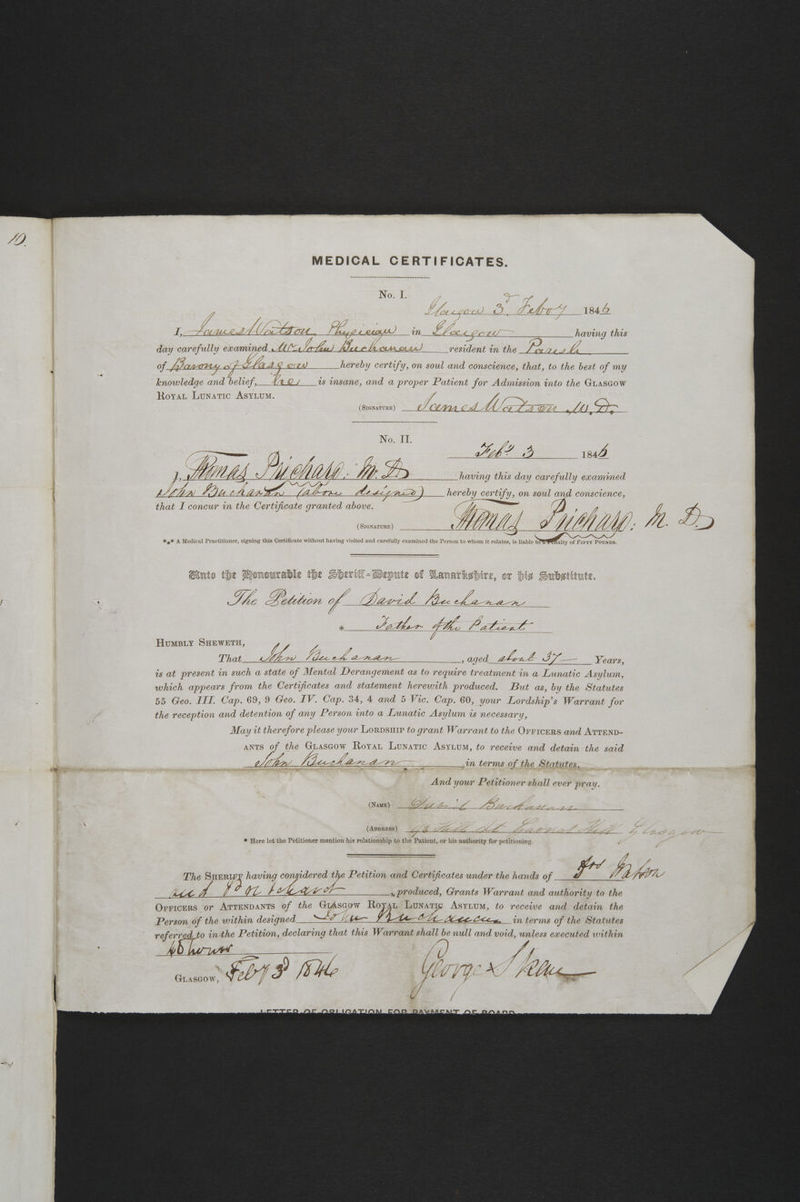 10.
MEDICAL CERTIFICATES.
No. I.
Glasgow 3d. Feby 1846
I, James Watson Physician in Glasgow having this
day carefully examined Mr. John Buchanan resident in the Parish
of Barony of Glasgow hereby certify, on soul and conscience, that, to the best of my
knowledge and belief, he is insane, and a proper Patient for Admission into the GLASGOW
ROYAL LUNATIC ASYLUM.
(SIGNATURE) James Watson M.D.
No. II.
Feby 3 1846
I, Thomas Prichard: M. D. having this day carefully examined
John Buchanan (above designed) hereby certify, on soul and conscience,
that I concur in the Certificate granted above.
(SIGNATURE) Thomas Prichard: M. D.
*** A Medical Practitioner, signing this Certificate without having visited and carefully examined the Person to whom it relates, is liable to a Penalty of FIFTY POUNDS.
Unto the Honourable the Sheriff-Depute of Lanarkshire, or his Substitute.
The Petition of David Buchanan
* Father of the Patient
HUMBLY SHEWETH,
That John Buchanan, aged about 37 — Years,
is at present in such a state of Mental Derangement as to require treatment in a Lunatic Asylum,
which appears from the Certificates and statement herewith produced. But as, by the Statutes
55 Geo. III. Cap. 69, 9 Geo. IV. Cap. 34, 4 and 5 Vic. Cap. 60, your Lordship's Warrant for
the reception and detention of any Person into a Lunatic Asylum is necessary,
May it therefore please your LORDSHIP to grant Warrant to the OFFICERS and ATTEND-
ANTS of the GLASGOW ROYAL LUNATIC ASYLUM, to receive and detain the said
John Buchanan in terms of the Statutes.
And your Petitioner shall ever pray.
(NAME) David Buchanan
(ADDRESS) Hill Glasgow
* Here let the Petitioner mention his relationship to the Patient, or his authority for petitioning.
The SHERIFF having considered the Petition and Certificates under the hands of Drs Watson
and Prichard, produced, Grants Warrant and authority to the
OFFICERS OR ATTENDANTS of the GLASGOW ROYAL LUNATIC ASYLUM, to receive and detain the
Person of the within designed John Buchanan in terms of the Statutes
referred to in the Petition, declaring that this Warrant shall be null and void, unless executed within
hours
GLASGOW, Feby 3d 1846 George Skene
LETTER OF OBLIGATION FOR PAYMENT OF BOARD